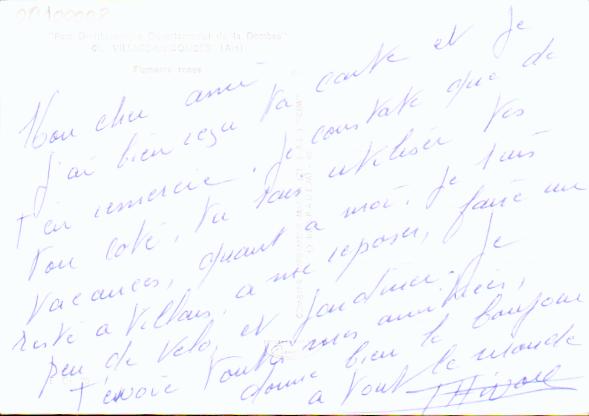 "Parc Ornithologique Départemental de la Dombes"
01. VILLARS-LES-DOMBES (Ain)
Flamants roses
Mon cher ami
J'ai bien reçu ta carte et je
t'en remercie. Je constate que de
ton coté, tu sais utiliser tes
vacances, quant a moi. Je suis
resté a Villars, a me reposer, faire un
peu de velo, et jardiner. Je
t'envoie toutes mes amitiées,
donne bien le bonjour
a tout le monde